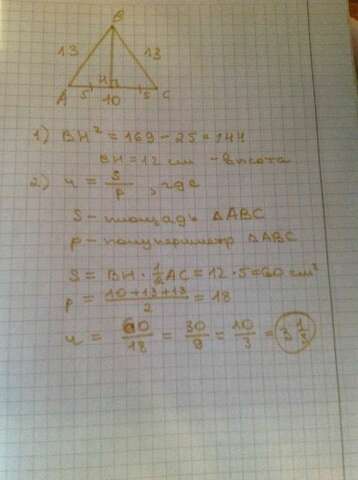 B
13 13
H
A 5 5 C
10
1) BH² = 169 - 25 = 144
BH = 12 см - высота
2) ч = S/P , где
S - площадь △ABC
P - полупериметр △ABC
S = BH · 1/2 AC = 12 · 5 = 60 см²
P = 10+13+13/2 = 18
ч = 60/18 = 30/9 = 10/3 = 3 1/3